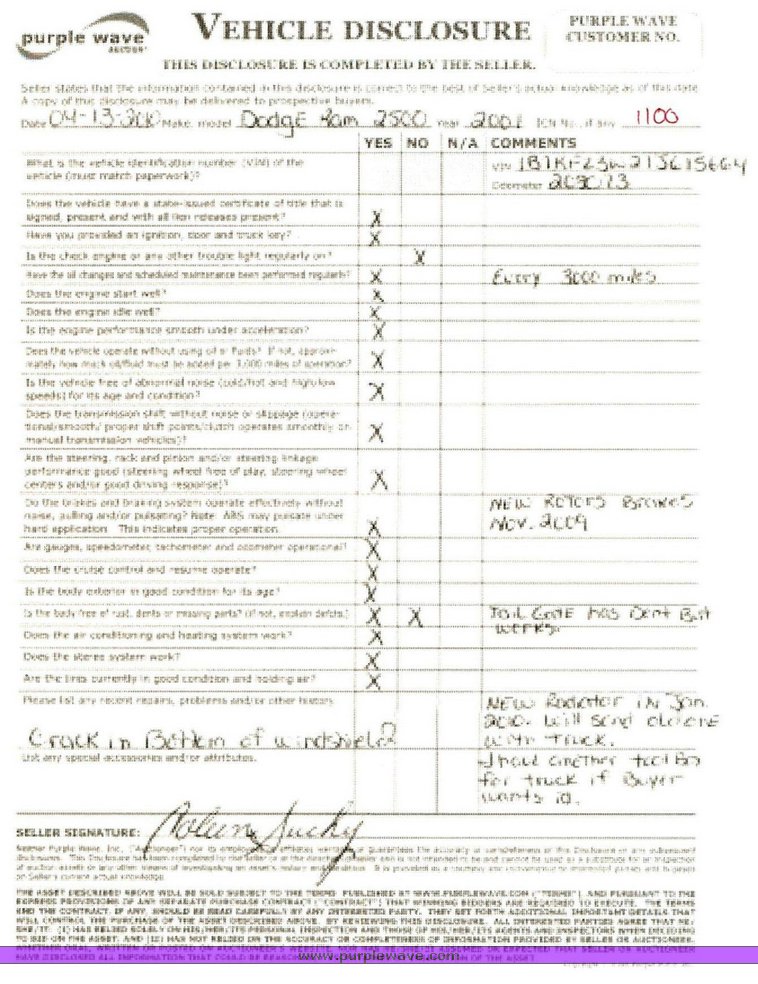 purple wave
AUCTION
VEHICLE DISCLOSURE
PURPLE WAVE
CUSTOMER NO.
THIS DISCLOSURE IS COMPLETED BY THE SELLER.
Seller states that the information contained in this disclosure is correct to the best of Seller's actual knowledge as of this date
A copy of this disclosure may be delivered to prospective buyers.
Date 04-13- Make, model Dodge Ram 2500 Year 2001 ICN No., if any 1100
YES NO N/A COMMENTS
What is the vehicle identification number (VIN) of the
vehicle (must match paperwork)?
VIN
Odometer
Does the vehicle have a state-issued certificate of title that is
signed, present and with all lien releases present? X
Have you provided an ignition, door and truck key? X
Is the check engine or any other trouble light regularly on? X
Have the oil changes and scheduled maintenance been performed regularly? X Every 3000 miles
Does the engine start well? X
Does the engine idle well? X
Is the engine performance smooth under acceleration? X
Does the vehicle operate without using oil or fluids? If not, approxi-
mately how much oil/fluid must be added per 1,000 miles of operation? X
Is the vehicle free of abnormal noise (cold/hot and high/low
speeds) for its age and condition? X
Does the transmission shift without noise or slippage (opera-
tional/smooth/ proper shift points/clutch operates smoothly on
manual transmission vehicles)? X
Are the steering, rack and pinion and/or steering linkage
performance good (steering wheel free of play, steering wheel
centers and/or good driving response)? X
Do the brakes and braking system operate effectively without
noise, pulling and/or pulsating? Note: ABS may pulsate under
hard application. This indicates proper operation. X
NEW ROTORS
NOV. 2009
Are gauges, speedometer, tachometer and odometer operational? X
Does the cruise control and resume operate? X
Is the body exterior in good condition for its age? X
Is the body free of rust, dents or missing parts? (if not, explain defects.) X X Tail Gate has Dent But
works.
Does the air conditioning and heating system work? X
Does the stereo system work? X
Are the tires currently in good condition and holding air? X
Please list any recent repairs, problems and/or other history
NEW Radiator in Jan.
2010. Will send old one
with Truck.
Crack in Bottom of windshield
List any special accessories and/or attributes.
I have another tool Box
for truck if Buyer
wants it.
SELLER SIGNATURE:
THE ASSET DESCRIBED ABOVE WILL BE SOLD SUBJECT TO THE TERMS PUBLISHED AT WWW.PURPLEWAVE.COM ("TERMS") AND PURSUANT TO THE
EXPRESS PROVISIONS OF ANY SEPARATE PURCHASE CONTRACT ("CONTRACT") THAT WINNING BIDDERS ARE REQUIRED TO EXECUTE. THE TERMS
AND THE CONTRACT, IF ANY, SHOULD BE READ CAREFULLY BY ANY INTERESTED PARTY. THEY SET FORTH ADDITIONAL IMPORTANT DETAILS THAT
WILL CONTROL THE PURCHASE OF THE ASSET DESCRIBED ABOVE. BY REVIEWING THIS DISCLOSURE, ALL INTERESTED PARTIES AGREE THAT HE/
SHE/IT: (I) HAS RELIED SOLELY ON HIS/HER/ITS PERSONAL INSPECTION AND THOSE OF HIS/HER/ITS AGENTS AND INSPECTORS WHEN DECIDING
TO BID ON THE ASSET, AND (II) HAS NOT RELIED ON THE ACCURACY OR COMPLETENESS OF INFORMATION PROVIDED BY SELLER OR AUCTIONEER,
www.purplewave.com